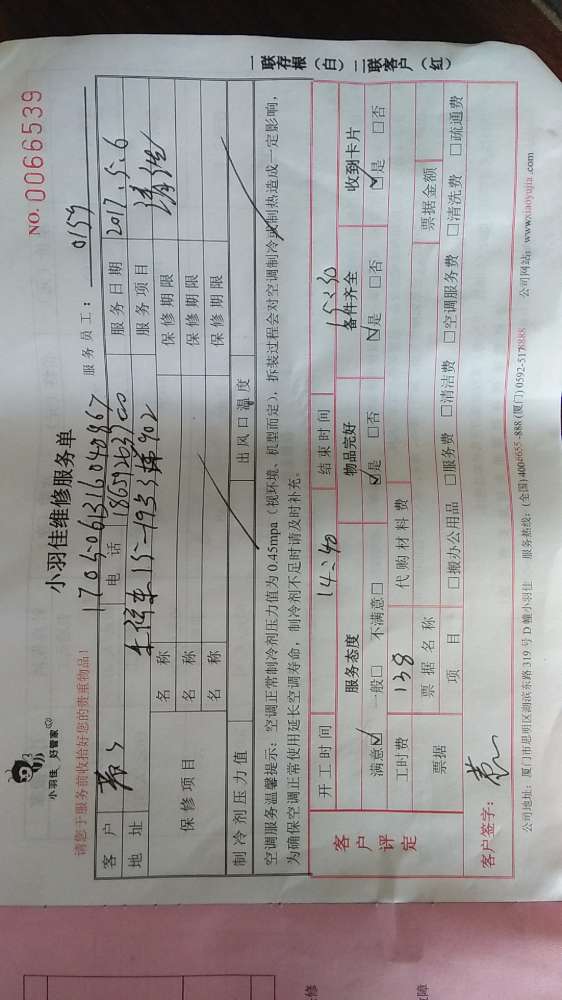 小羽佳 好管家
小羽佳维修服务单
NO. 0066539
请您于服务前收拾好您的贵重物品!
1705061316040867
服务员工: 0159
客户
电话 18659263700
服务日期 2017.5.6
地址
服务项目 清洗
保修项目
名称
保修期限
名称
保修期限
名称
保修期限
制冷剂压力值
出风口温度
空调服务温馨提示: 空调正常制冷剂压力值为0.45mpa(视环境、机型而定), 拆装过程会对空调制冷或制热造成一定影响,
为确保空调正常使用延长空调寿命, 制冷剂不足时请及时补充。
客户评定
开工时间 14:40 结束时间 15:30
服务态度 物品完好 备件齐全 收到卡片
满意☑ 一般□ 不满意□ ☑是 □否 ☑是 □否 ☑是 □否
工时费 138 代购材料费
票据 票据名称 票据金额
项目 □搬办公用品 □服务费 □清洁费 □空调服务费 □清洗费 □疏通费
客户签字:
公司地址: 厦门市思明区湖滨东路319号D幢小羽佳 服务热线: (全国)4004655-888 (厦门)0592-5178888 公司网站: www.xiaoyujia.com
一联存根(白) 二联客户(红)